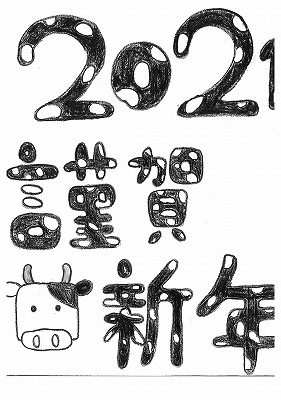 2021
謹賀
新年